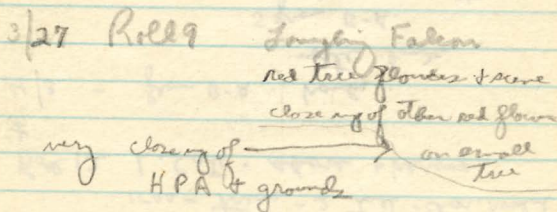 3/27 Roll 9 Laughing Falcon
red tree flowers + scene
close up of other red flowers
very close up of → on small
H P A + grounds tree